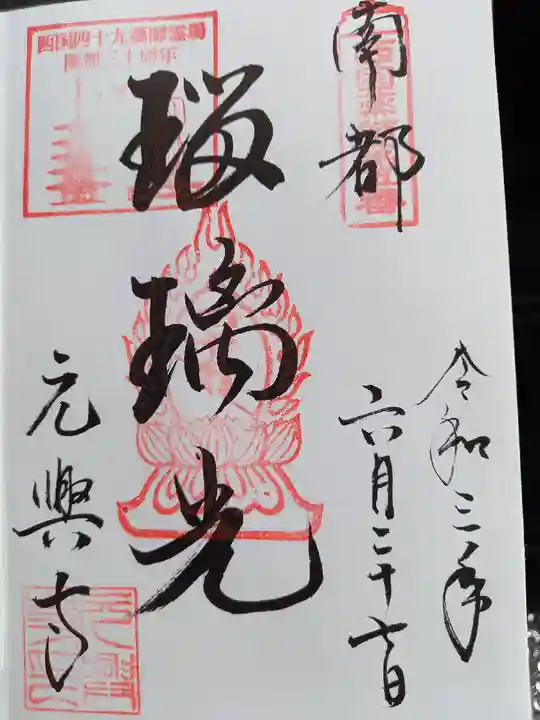 南都
令和三年
六月二十七日
瑠璃光
西国四十九薬師霊場
開創三十周年
元興寺